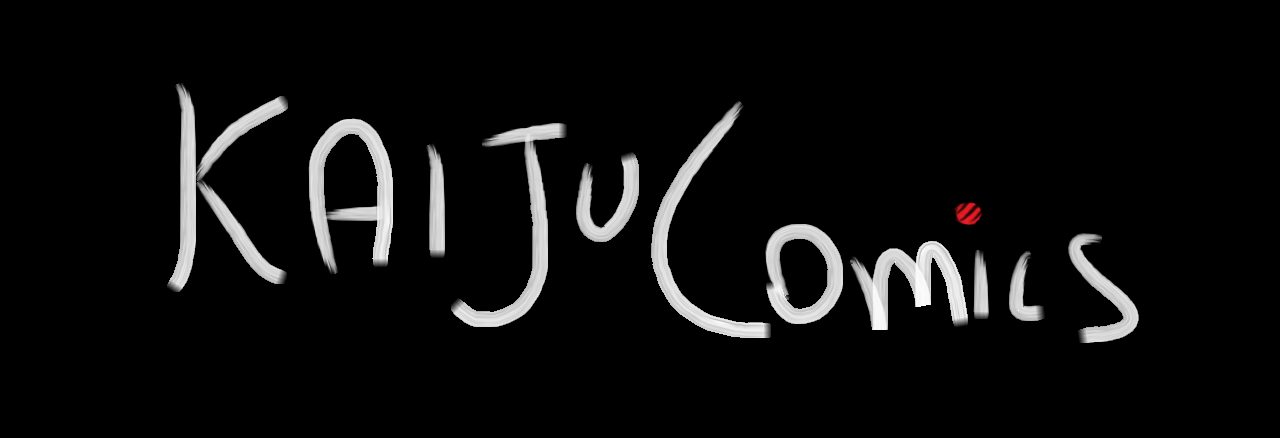 KAIJU Comics